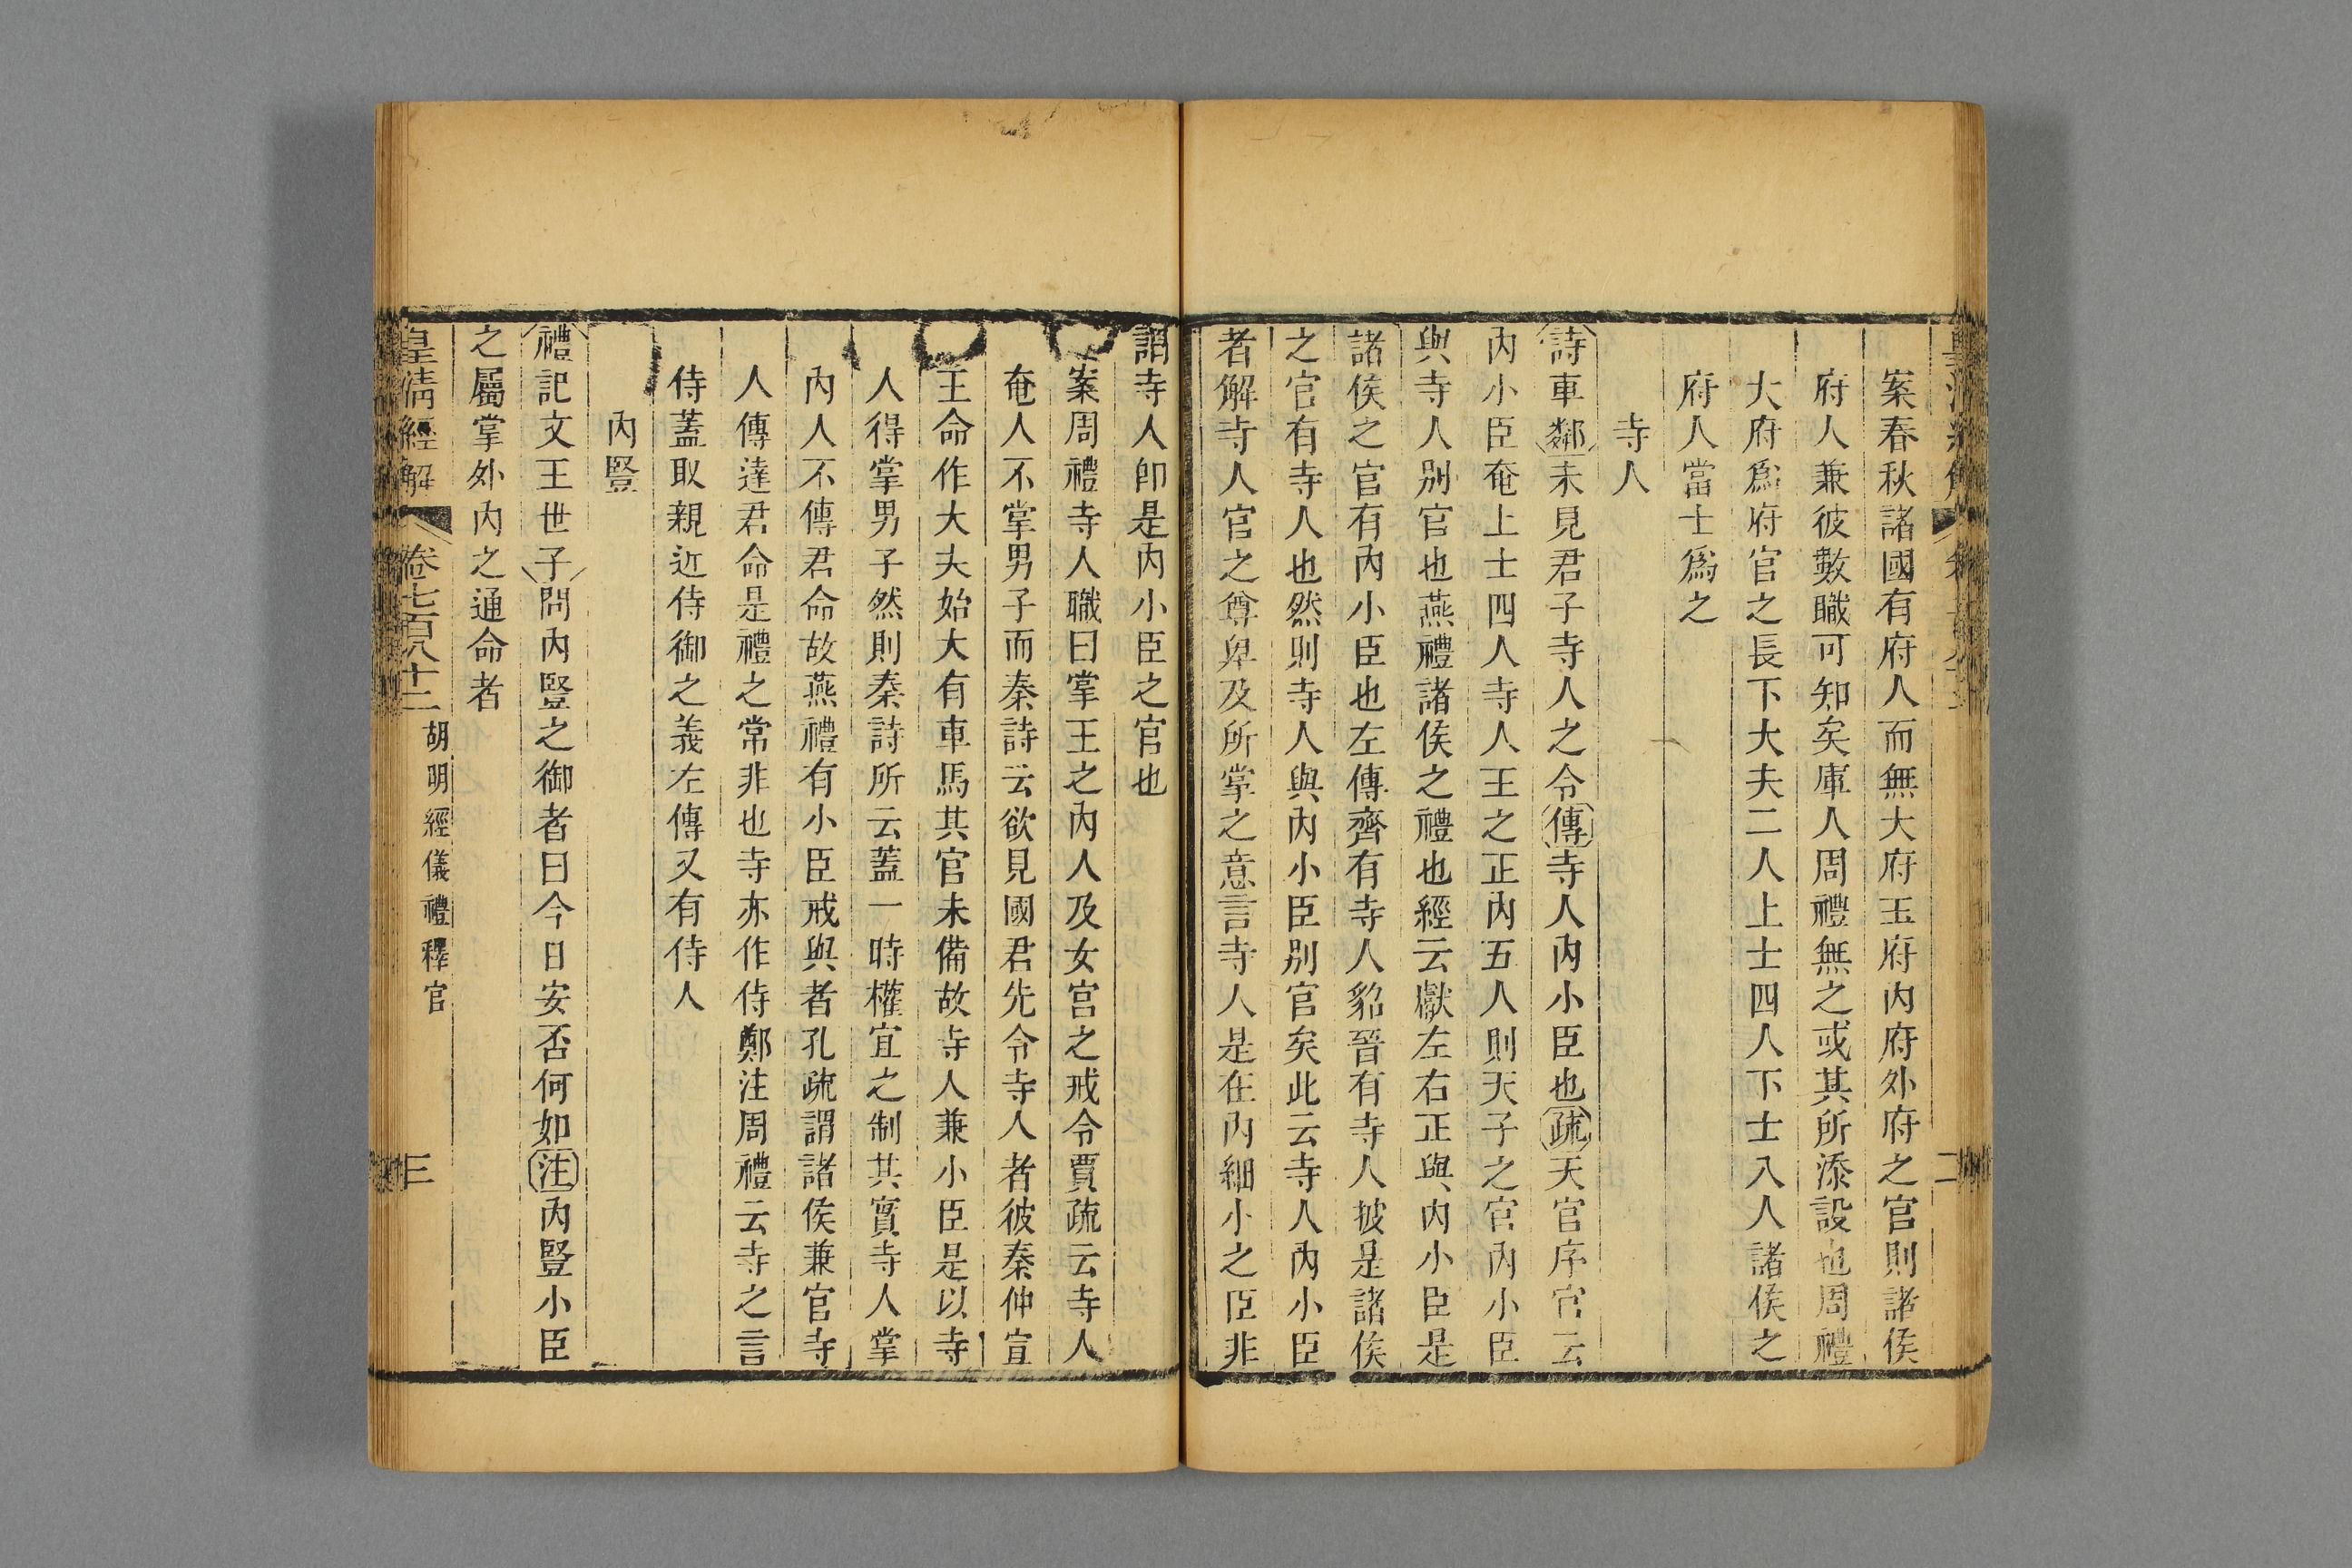 案春秋諸國有府人而無大府玉府内府外府之官則諸侯
府人兼彼數職可知矣庫人周禮無之或其所添設也周禮
大府爲府官之長下大夫二人上士四人下士八人諸侯之
府人當士爲之
寺人
詩車鄰未見君子寺人之令傳寺人内小臣也疏天官序官云
内小臣奄上士四人寺人王之正内五人則天子之官内小臣
與寺人别官也燕禮諸侯之禮也經云獻左右正與内小臣是
諸侯之官有内小臣也左傳齊有寺人貂晉有寺人披是諸侯
之官有寺人也然則寺人與内小臣别官矣此云寺人内小臣
者解寺人官之尊卑及所掌之意言寺人是在内細小之臣非
謂寺人卽是内小臣之官也
案周禮寺人職曰掌王之内人及女宫之戒令賈疏云寺人
奄人不掌男子而秦詩云欲見國君先令寺人者彼秦仲宣
王命作大夫始大有車馬其官未備故寺人兼小臣是以寺
人得掌男子然則秦詩所云蓋一時權宜之制其實寺人掌
内人不傳君命故燕禮有小臣戒與者孔疏謂諸侯兼官寺
人傳達君命是禮之常非也寺亦作侍鄭注周禮云寺之言
侍蓋取親近侍御之義左傳又有侍人
内豎
禮記文王世子問内豎之御者曰今日安否何如注内豎小臣
之屬掌外内之通命者
皇清經解 卷七百八十二 胡明經儀禮釋官 三